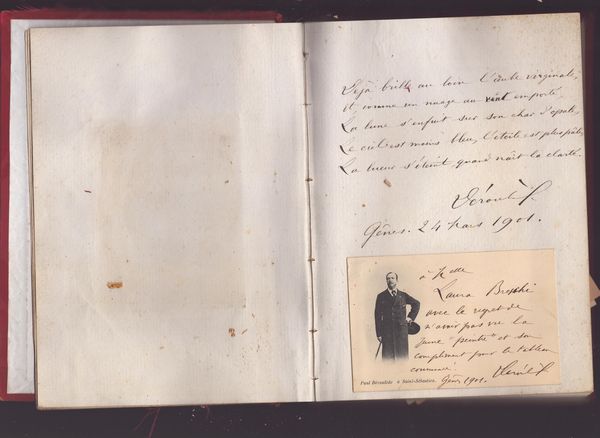 Déjà brille au loin l'aube virginale,
Et comme un nuage au vent emporté
La lune s'enfuit sur son char d'opale,
Le ciel est moins bleu, l'étoile est plus pâle,
La lueur s'éteint, quand naît la clarté.
Gênes. 24 Mars 1901.
à Melle
Laura
avec le regret de
n'avoir pas vu la
jeune "peintre" et son
compliment pour le tableau
commencé.
Gênes 1901.
Paul Déroulède à Saint-Sébastien.